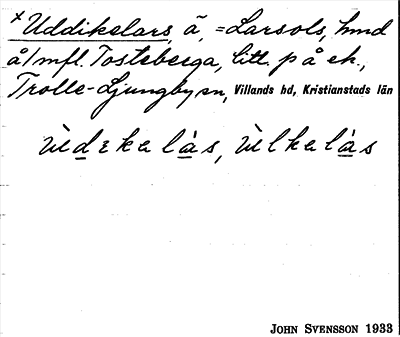 ×Uddikelars, ä, =Larsols, hmd
å/mfl. Tosteberga, litt. på ek.,
Trolle-Ljungby sn, Villands hd, Kristianstads län
ùdekalàs, ùlkalàs
JOHN SVENSSON 1933